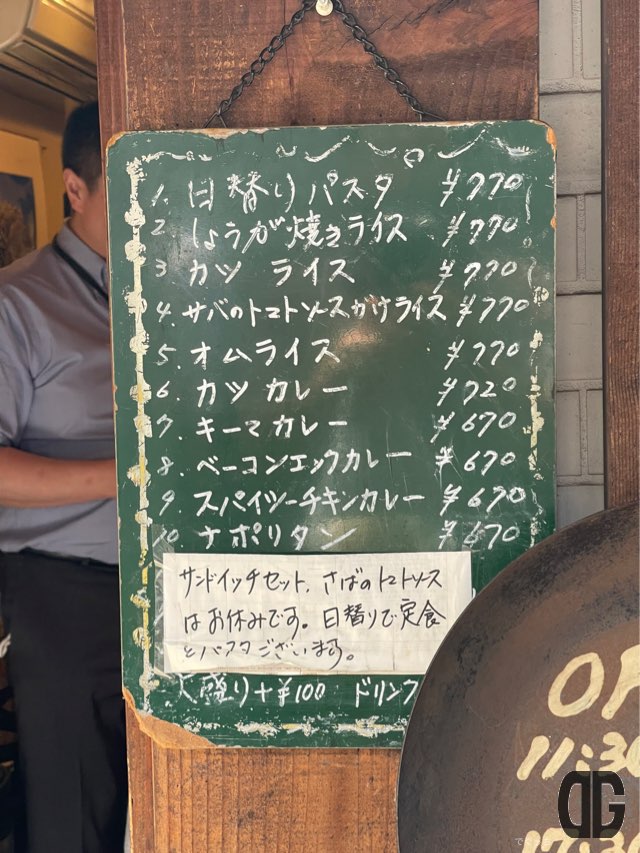 1. 日替りパスタ ¥770
2 しょうが焼きライス ¥770
3 カツ ライス ¥770
4. サバのトマトソースがけライス ¥770
5. オムライス ¥770
6. カツカレー ¥720
7. キーマカレー ¥670
8. ベーコンエッグカレー ¥670
9. スパイシーチキンカレー ¥670
10 ナポリタン ¥670
サンドイッチセット、さばのトマトソース
はお休みです。日替りで定食
とパスタございます。
大盛り+¥100 ドリン
OP
11:30
17:30
DG